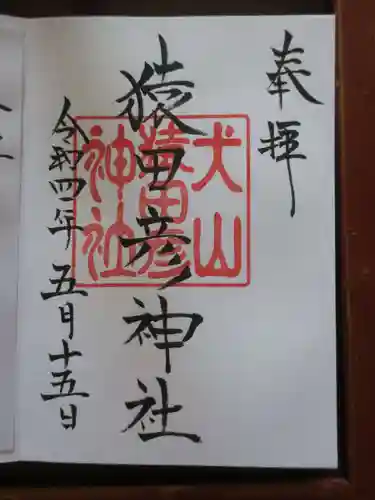 奉拝
猿田彦神社
犬山
猿田彦
神社
令和四年五月十五日